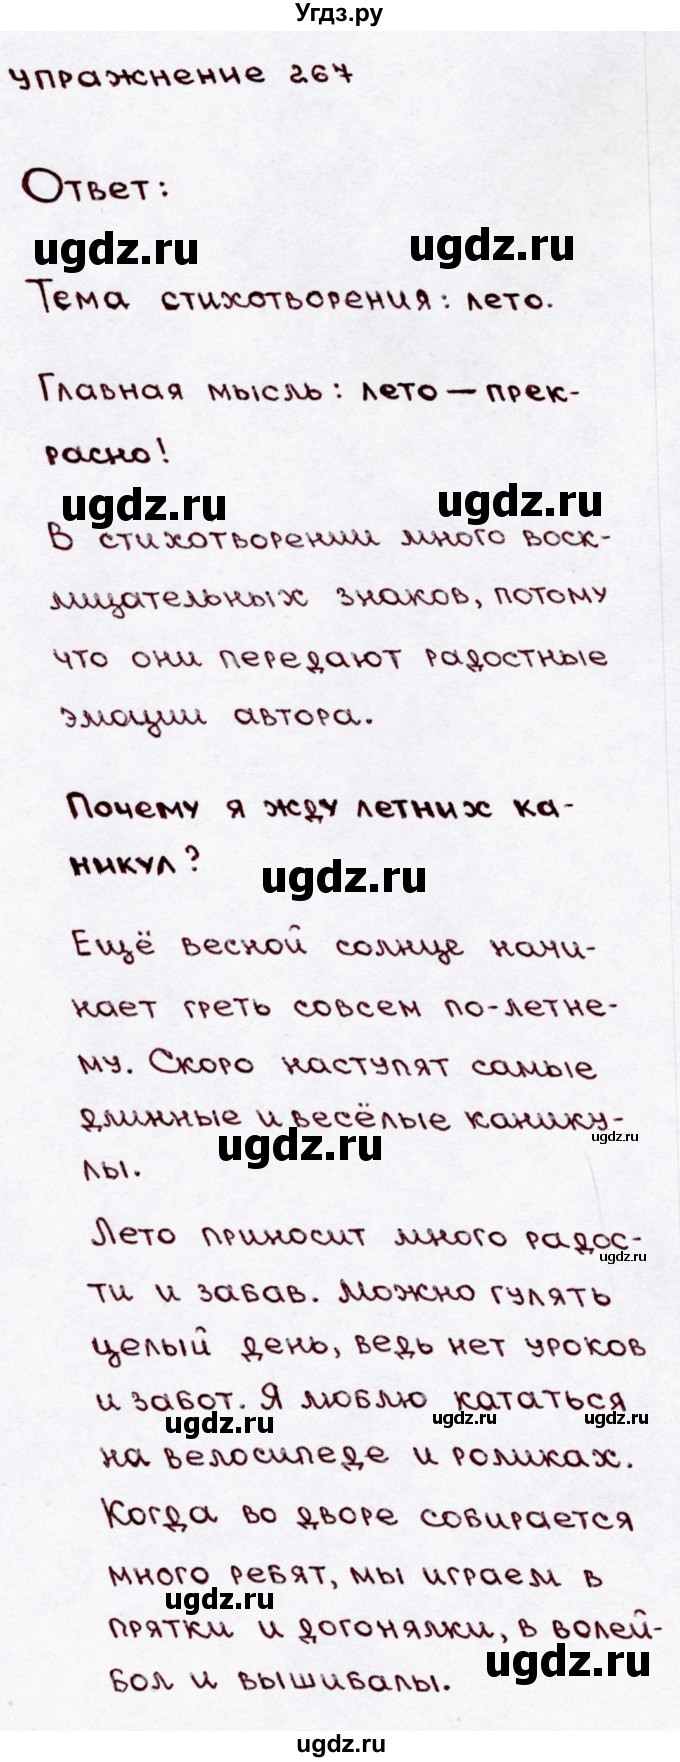 Угдз.ру
упражнение 267
Ответ:
ugdz.ru ugdz.ru
Тема стихотворения: лето.
Главная мысль: лето — прек-
расно!
ugdz.ru ugdz.ru
В стихотворении много воск-
лицательных знаков, потому
что они передают радостные
эмоции автора.
Почему я жду летних ка-
никул?
ugdz.ru
Ещё весной солнце начи-
нает греть совсем по-летне-
му. Скоро наступят самые
длинные и весёлые канику-
ugdz.ru ugdz.ru
лы.
Лето приносит много радос-
ugdz.ru
ти и забав. Можно гулять
целый день, ведь нет уроков
и забот. Я люблю кататься
ugdz.ru ugdz.ru ugdz.ru
на велосипеде и роликах.
Когда во дворе собирается
много ребят, мы играем в
ugdz.ru
прятки и догонялки, в волей-
ugdz.ru
бол и вышибалы.
ugdz.ru